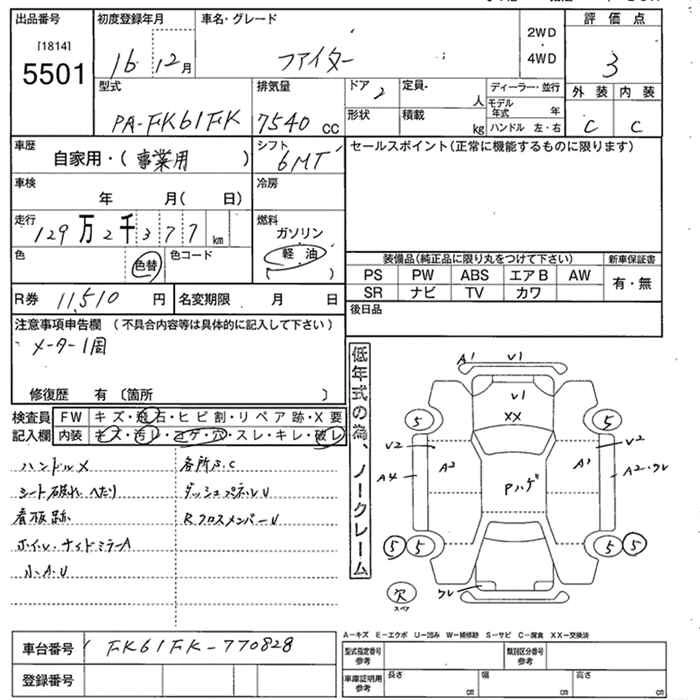 出品番号 初度登録年月 車名・グレード 評価点
[1814]
5501
16 12月 ファイター 2WD 4WD 3
型式 排気量 ドア 2 定員 人 ディーラー・並行 外装 内装
PA-FK61FK 7540 cc 形状 積載 kg モデル年式 年 ハンドル 左・右 C C
車歴 自家用・(事業用) シフト 6MT セールスポイント(正常に機能するものに限ります)
車検 年 月( 日) 冷房
走行 129万2千377km 燃料 ガソリン 軽油 ( )
色 色替 色コード
装備品(純正品に限り丸をつけて下さい) 新車保証書
PS PW ABS エアB AW 有・無
SR ナビ TV カワ
R券 11,510円 名変期限 月 日 後日品
注意事項申告欄 (不具合内容等は具体的に記入して下さい)
メーター1周
修復歴 有 〔箇所 〕
検査員記入欄 FW キズ・飛石・ヒビ割・リペア跡・X要
内装 キズ・汚レ・コゲ・穴・スレ・キレ・破レ
ハンドルX 各所S.C
シート破れ へたり ダッシュパネルU
看板跡 RクロスメンバーU
ホイル・サイドミラーA
小A.U
低年式の為、ノークレーム
A1 V1
V1
XX
5 5
V2 V2
A4 A2 Pハゲ A1 A2・クレ
5 5 5 5
クレ
穴
スペア
A−キズ E−エクボ U−凹み W−補修跡 S−サビ C−腐食 XX−交換済
車台番号 FK61FK-770828
登録番号
型式指定番号 参考 類別区分番号 参考
車庫証明用 参考 長さ cm 幅 cm 高さ cm